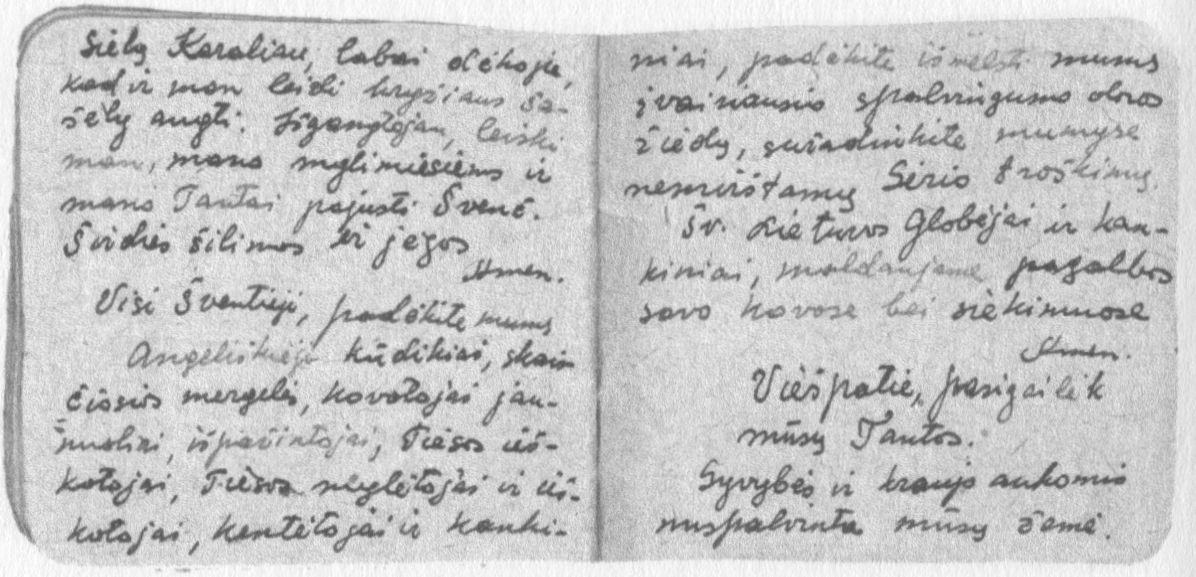 Sielų Karaliau, labai dėkoju,
kad ir man leidi kryžiaus ša-
šėlų augti. Išganytojau, leiski
man, mano mylimiesiems ir
mano Tautai pajusti Švenč.
Širdies šilimos ir jėgos
Amen.
Visi Šventieji, padėkite mums
Angeliškieji kūdikiai, skais-
čiosios mergelės, kovotojai jau-
nuoliai, išpažintojai, Tiesos ieš-
kotojai, Tiesos mylėtojai ir ieš-
kotojai, kentėtojai ir kanki-
niai, padėkite išmelsti mums
įvairiausio spalvingumo doros
žiedų, sužadinkite mumyse
nenurimstamų Gėrio troškimų.
Šv. Lietuvos Globėjai ir kan-
kiniai, maldaujame pagalbos
savo kovose bei siekimuose
Amen.
Viešpatie, pasigailėk
mūsų Tautos.
Gyvybės ir kraujo aukomis
nuspalvinta mūsų žemė.